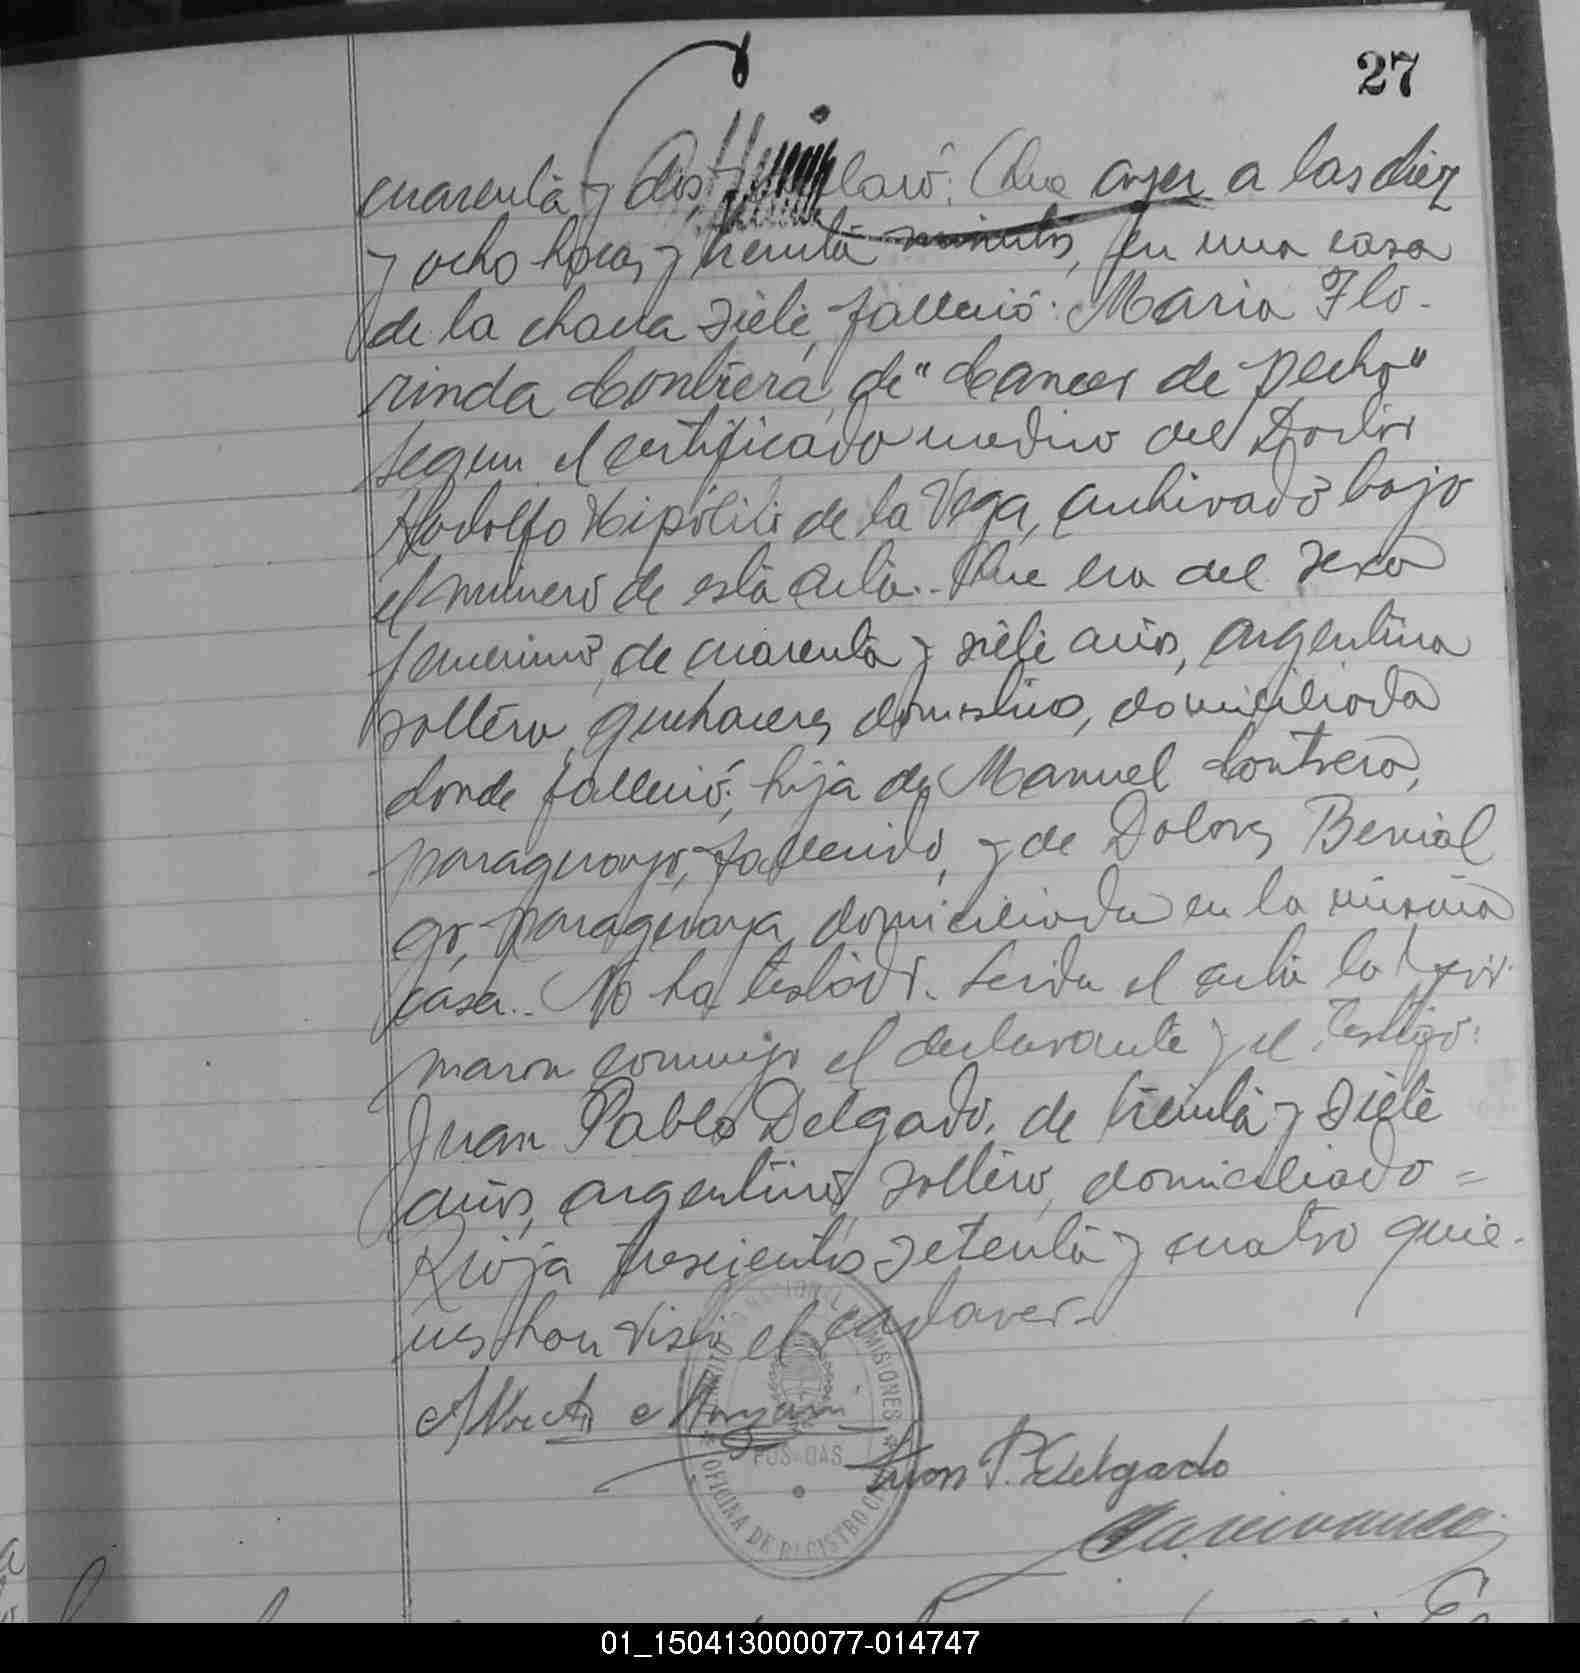 27
cuarenta y dos, declaró: Que ayer a las diez
y ocho horas y treinta minutos, en una casa
de la chacra siete, falleció: Maria Flo-
rinda Contrera, de "Cancer de pecho"
segun el certificado medico del Doctor
Rodolfo Hipólito de la Vega, archivado bajo
el número de esta acta.. Que era del sexo
femenino, de cuarenta y siete años, argentina
soltera, quehaceres domésticos, domiciliada
donde falleció; hija de Manuel Contrera,
paraguayo, fallecido, y de Dolores
paraguaya, domiciliada en la misma
casa.. No ha testado. Leida el acta la fir-
maron conmigo el declarante y el testigo:
Juan Pablo Delgado, de treinta y siete
años, argentino, soltero, domiciliado =
Rioja trescientos setenta y cuatro quie-
nes han visto el cadaver.-
Alberto
Juan P. Delgado
NACIONAL MISIONES
POSADAS
OFICINA DE REGISTRO
01_150413000077-014747